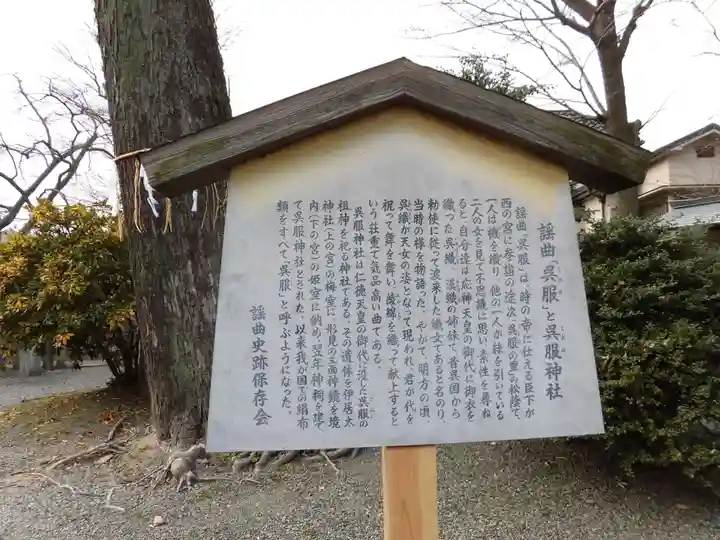 謡曲「呉服」と呉服神社
謡曲「呉服」は、時の帝に仕える臣下が
西の宮に参詣の途次、呉服の里の松陰で、
一人は機を織り、他の一人が絲を引いている
二人の女を見て不思議に思い、素性を尋ね
ると、自分達は応神天皇の御代に御衣を
織った呉織、漢織の姉妹で、昔呉国から
勅使に従って渡来した織女であると名のり、
当時の様を物語った。やがて、明方の頃、
呉織が天女の姿となって現われ、君が代を
祝って舞を舞い、綾錦を織って献上すると
いう荘重で気品高い曲である。
呉服神社は、仁徳天皇の御代に逝した呉服の
祖神を祀る神社である。その遺体を伊居太
神社（上の宮）の梅室に、形見の三面神鏡を境
内（下の宮）の姫室に納め、翌年神祠を建て
て呉服神社とされた。以来我が国での絹布
類をすべて「呉服」と呼ぶようになった。
謡曲史跡保存会